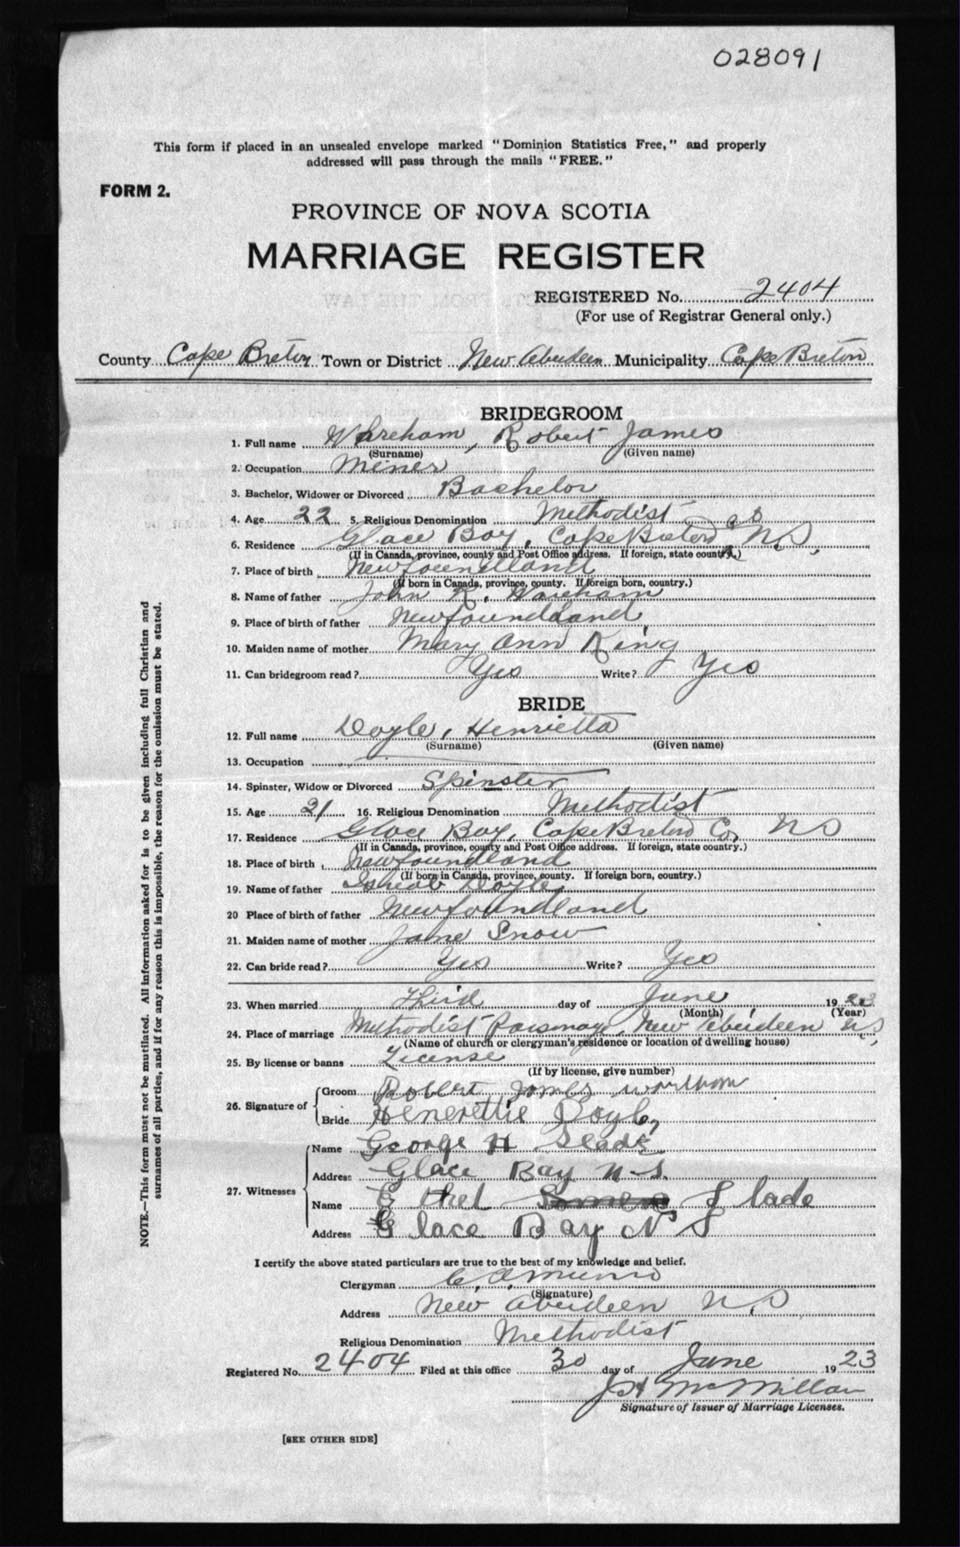 028091
This form if placed in an unsealed envelope marked "Dominion Statistics Free," and properly
addressed will pass through the mails "FREE."
FORM 2.
PROVINCE OF NOVA SCOTIA
MARRIAGE REGISTER
REGISTERED No. 2404
(For use of Registrar General only.)
County Cape Breton Town or District New Aberdeen Municipality Cape Breton
BRIDEGROOM
1. Full name Wareham, Robert James
(Surname) (Given name)
2. Occupation Miner
3. Bachelor, Widower or Divorced Bachelor
4. Age 22 5. Religious Denomination Methodist
6. Residence Glace Bay, Cape Breton Co N.S.
(If in Canada, province, county and Post Office address. If foreign, state country.)
7. Place of birth Newfoundland
(If born in Canada, province, county. If foreign born, country.)
8. Name of father John R. Wareham
9. Place of father Newfoundland
10. Maiden name of mother Mary Ann King
11. Can bridegroom read? Yes Write? Yes
BRIDE
12. Full name Doyle, Henrietta
(Surname) (Given name)
13. Occupation
14. Spinster, Widow or Divorced Spinster
15. Age 21 16. Religious Denomination Methodist
17. Residence Glace Bay, Cape Breton Co, N S
(If in Canada, province, county and Post Office address. If foreign, state country.)
18. Place of birth Newfoundland
(If born in Canada, province, county. If foreign born, country.)
19. Name of father Doyle
20 Place of birth of father Newfoundland
21. Maiden name of mother Jane Snow
22. Can bride read? Yes Write? Yes
23. When married Third day of June 1923
(Month) (Year)
24. Place of marriage Methodist New Aberdeen N S
(Name of church or clergyman's residence or location of dwelling house)
25. By license or banns License
(If by license, give number)
26. Signature of Groom Robert James
Bride Henerettie Doyle
27. Witnesses Name George H Slade
Address Glace Bay N.S.
Name Ethel Slade
Address Glace Bay N S
I certify the above stated particulars are true to the best of my knowledge and belief.
Clergyman C. A. Munro
(Signature)
Address New Aberdeen N.S
Religious Denomination Methodist
Registered No. 2404 Filed at this office 30 day of June 1923
J H McMillan
Signature of Issuer of Marriage Licenses.
[SEE OTHER SIDE]
NOTE.—This form must not be mutilated. All information asked for is to be given including full Christian and
surnames of all parties, and if for any reason this is impossible, the reason for the omission must be stated.